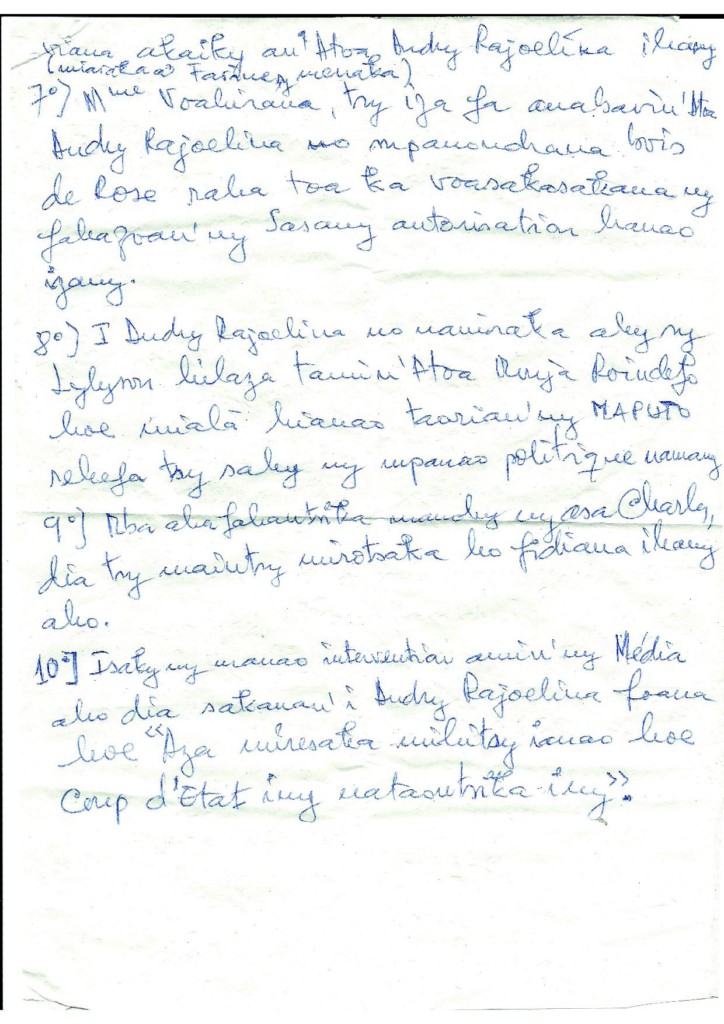 akaiky an'Atoa Andry Rajoelina ihany
(miaraka a menaka)
7°) Mme Voahirana, tsy iza fa anabavin'Atoa
Andry Rajoelina no mpanondrana bois
de Rose raha toa ka voasakasakana ny
fahazoan'ny Sasany autorisation hanao
izany.
8°) I Andry Rajoelina no naniraka ahy sy
Lylyson hilaza tamin'Atoa Monja Roindefo
hoe miala hianao taorian'ny MAPUTO
rehefa tsy sahy ny mpanao politique namany
9°) Mba aha fahantsika mandry ny asa Charles,
dia tsy maintsy mirotsaka ho fidiana ihany
aho.
10°] Isaky ny manao intervention amin'ny Média
aho dia sakanan'i Andry Rajoelina foana
hoe "Aza miresaka mihitsy ianao hoe
Coup d'Etat iny nataontsika iny".